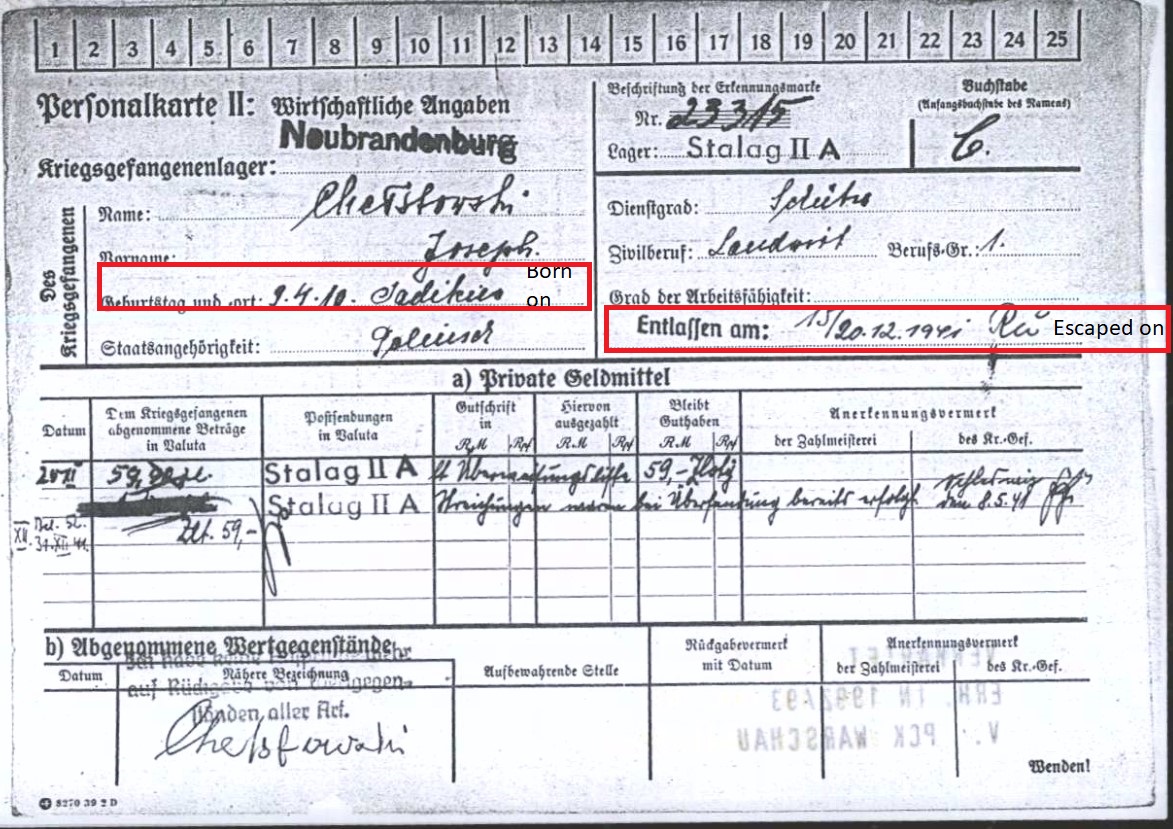 1 2 3 4 5 6 7 8 9 10 11 12 13 14 15 16 17 18 19 20 21 22 23 24 25
Personalkarte II: Wirtschaftliche Angaben
Neubrandenburg
Kriegsgefangenenlager:
Beschriftung der Erkennungsmarke
Nr. 23315
Lager: Stalag II A
Buchstabe
(Anfangsbuchstabe des Namens)
C.
Des Kriegsgefangenen
Name: Chełstowski
Vorname: Joseph.
Geburtstag und -ort: 9.4.10.
Born on
Staatsangehörigkeit:
Dienstgrad: Schütze
Zivilberuf: Landwirt Berufs-Gr.: 1.
Grad der Arbeitsfähigkeit:
Entlassen am: 15/20.12.1941 Escaped on
a) Private Geldmittel
Datum
Dem Kriegsgefangenen abgenommene Beträge in Valuta
Postsendungen in Valuta
Gutschrift in
RM Rpf
Hiervon ausgezahlt
RM Rpf
Bleibt Guthaben
RM Rpf
Anerkennungsvermerk
der Zahlmeisterei des Kr.-Gef.
59, Stalag II A lt Überweisungsliste 59,- Zloty
Stalag II A Streichungen waren bei Übersendung bereits erfolgt. den 8.5.41
Zlt. 59,-
b) Abgenommene Wertgegenstände
Datum
Nähere Bezeichnung
Aufbewahrende Stelle
Rückgabevermerk mit Datum
Anerkennungsvermerk
der Zahlmeisterei des Kr.-Gef.
auf Rückgabe von Wertgegen-
ständen aller Art.
Chełstowski
ERH. IN 1992/93
V. PCK WARSCHAU
Wenden!
8270 39 2 D